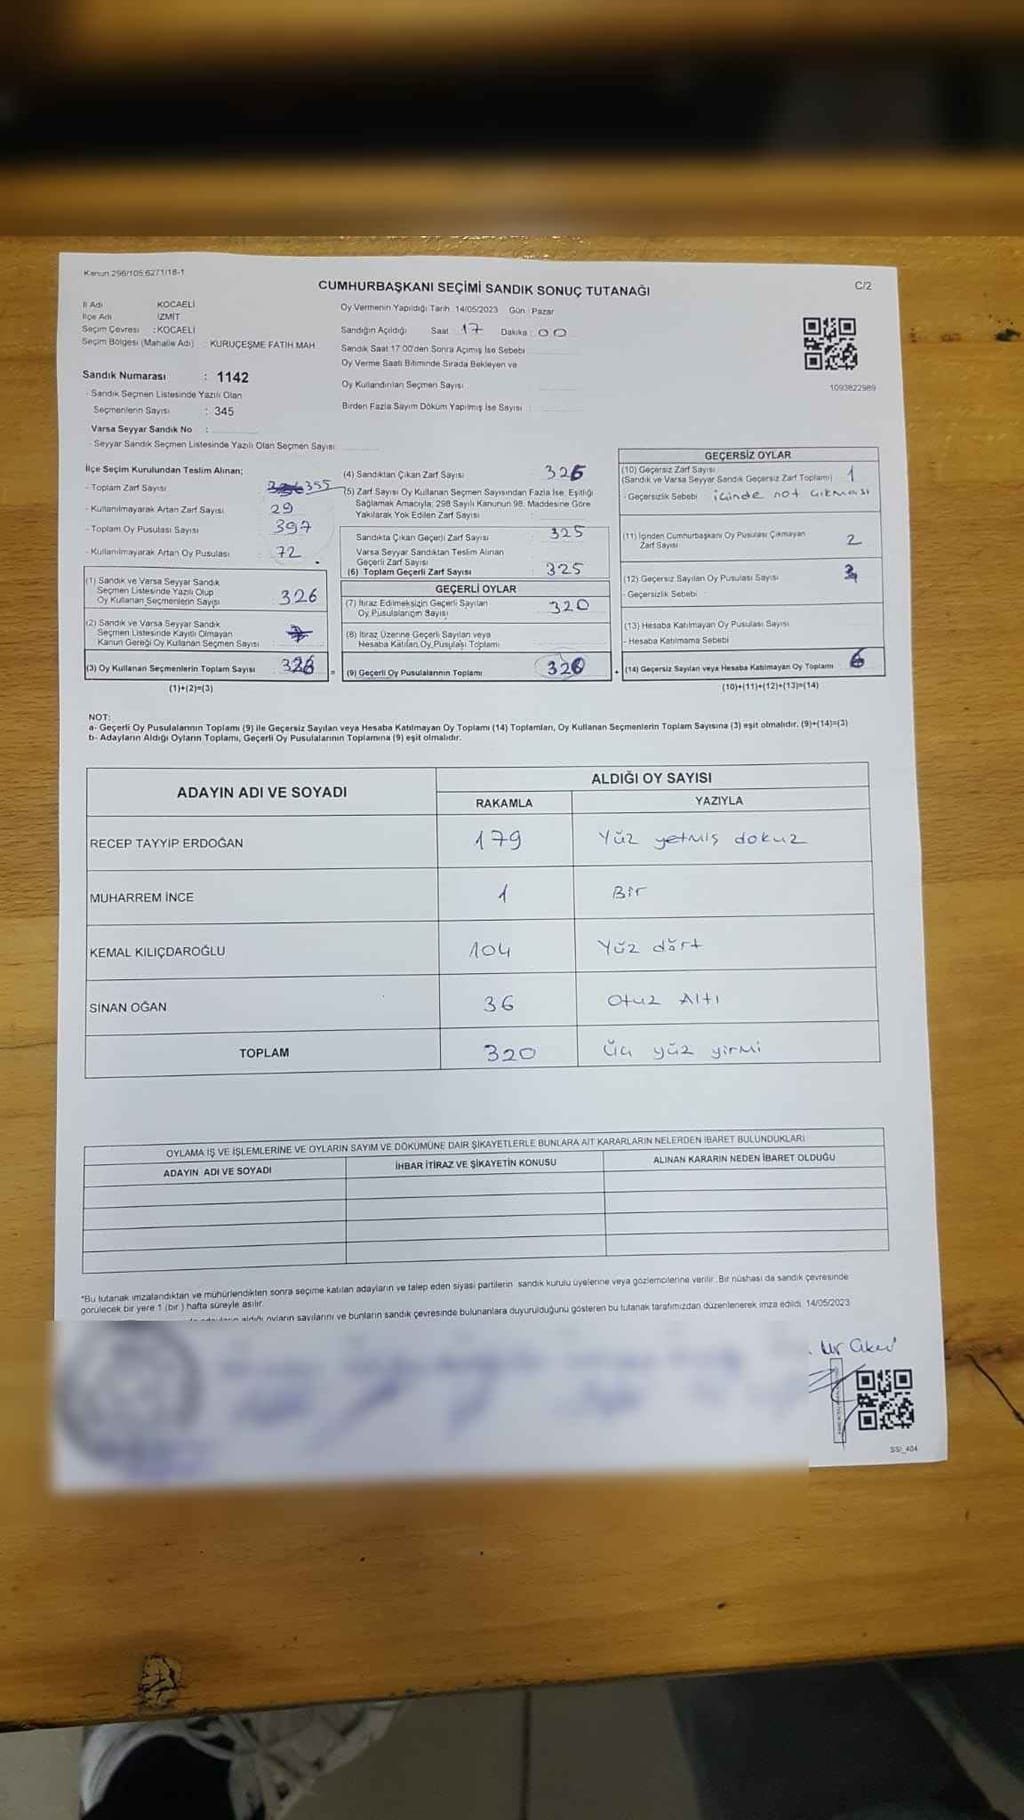 Kanun 298/105,6271/18-1
CUMHURBAŞKANI SEÇİMİ SANDIK SONUÇ TUTANAĞI
C/2
İl Adı KOCAELİ
İlçe Adı İZMİT
Seçim Çevresi : KOCAELİ
Seçim Bölgesi (Mahalle Adı) : KURUÇEŞME FATİH MAH
Sandık Numarası : 1142
- Sandık Seçmen Listesinde Yazılı Olan
Seçmenlerin Sayısı : 345
Varsa Seyyar Sandık No :
- Seyyar Sandık Seçmen Listesinde Yazılı Olan Seçmen Sayısı
Oy Vermenin Yapıldığı Tarih 14/05/2023 Gün : Pazar
Sandığın Açıldığı Saat 17 Dakika : 00
Sandık Saat 17:00'den Sonra Açımış İse Sebebi
Oy Verme Saati Bitiminde Sırada Bekleyen ve
Oy Kullandırılan Seçmen Sayısı
Birden Fazla Sayım Döküm Yapılmış İse Sayısı :
1093822989
İlçe Seçim Kurulundan Teslim Alınan;
- Toplam Zarf Sayısı 355
- Kullanılmayarak Artan Zarf Sayısı 29
- Toplam Oy Pusulası Sayısı 397
- Kullanılmayarak Artan Oy Pusulası 72
(1) Sandık ve Varsa Seyyar Sandık
Seçmen Listesinde Yazılı Olup
Oy Kullanan Seçmenlerin Sayısı 326
(2) Sandık ve Varsa Seyyar Sandık
Seçmen Listesinde Kayıtlı Olmayan
Kanun Gereği Oy Kullanan Seçmen Sayısı
(3) Oy Kullanan Seçmenlerin Toplam Sayısı 326 =
(1)+(2)=(3)
(4) Sandıktan Çıkan Zarf Sayısı 326
(5) Zarf Sayısı Oy Kullanan Seçmen Sayısından Fazla İse, Eşitliği
Sağlamak Amacıyla; 298 Sayılı Kanunun 98. Maddesine Göre
Yakılarak Yok Edilen Zarf Sayısı
Sandıkta Çıkan Geçerli Zarf Sayısı 325
Varsa Seyyar Sandıktan Teslim Alınan
Geçerli Zarf Sayısı
(6) Toplam Geçerli Zarf Sayısı 325
GEÇERLİ OYLAR
(7) İtiraz Edilmeksizin Geçerli Sayılan
Oy Pusulalarının Sayısı 320
(8) İtiraz Üzerine Geçerli Sayılan veya
Hesaba Katılan Oy Pusulası Toplamı
(9) Geçerli Oy Pusulalarının Toplamı 320 +
GEÇERSİZ OYLAR
(10) Geçersiz Zarf Sayısı
(Sandık ve Varsa Seyyar Sandık Geçersiz Zarf Toplamı) 1
- Geçersizlik Sebebi içinde not çıkması
(11) İçinden Cumhurbaşkanı Oy Pusulası Çıkmayan
Zarf Sayısı 2
(12) Geçersiz Sayılan Oy Pusulası Sayısı 3
- Geçersizlik Sebebi
(13) Hesaba Katılmayan Oy Pusulası Sayısı
- Hesaba Katılmama Sebebi
(14) Geçersiz Sayılan veya Hesaba Katılmayan Oy Toplamı 6
(10)+(11)+(12)+(13)=(14)
NOT:
a- Geçerli Oy Pusulalarının Toplamı (9) ile Geçersiz Sayılan veya Hesaba Katılmayan Oy Toplamı (14) Toplamları, Oy Kullanan Seçmenlerin Toplam Sayısına (3) eşit olmalıdır. (9)+(14)=(3)
b- Adayların Aldığı Oyların Toplamı, Geçerli Oy Pusulalarının Toplamına (9) eşit olmalıdır.
ADAYIN ADI VE SOYADI ALDIĞI OY SAYISI
RAKAMLA YAZIYLA
RECEP TAYYİP ERDOĞAN 179 Yüz yetmiş dokuz
MUHARREM İNCE 1 Bir
KEMAL KILIÇDAROĞLU 104 Yüz dört
SİNAN OĞAN 36 Otuz Altı
TOPLAM 320 Üç yüz yirmi
OYLAMA İŞ VE İŞLEMLERİNE VE OYLARIN SAYIM VE DÖKÜMÜNE DAİR ŞİKAYETLERLE BUNLARA AİT KARARLARIN NELERDEN İBARET BULUNDUKLARI
ADAYIN ADI VE SOYADI İHBAR İTİRAZ VE ŞİKAYETİN KONUSU ALINAN KARARIN NEDEN İBARET OLDUĞU
*Bu tutanak imzalandıktan ve mühürlendikten sonra seçime katılan adayların ve talep eden siyasi partilerin sandık kurulu üyelerine veya gözlemcilerine verilir. Bir nüshası da sandık çevresinde
görülecek bir yere 1 (bir) hafta süreyle asılır.
oyların sayılarını ve bunların sandık çevresinde bulunanlara duyurulduğunu gösteren bu tutanak tarafımızdan düzenlenerek imza edildi. 14/05/2023
SSI_404